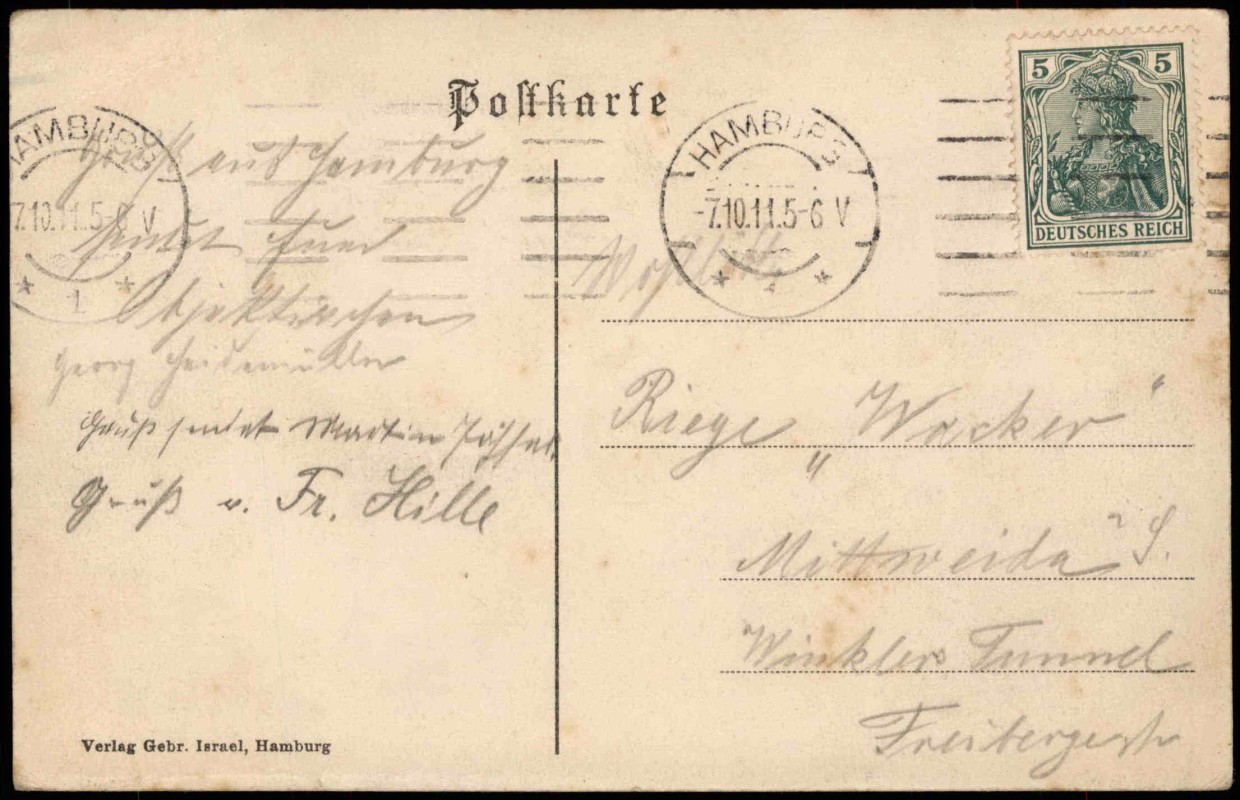 Postkarte
5 5
DEUTSCHES REICH
HAMBURG
-7.10.11.5-6 V
* 1 *
HAMBURG
7.10.11.5-6 V
* 1 *
Gruß aus Hamburg
sendet Euer
Georg
Gruß sendet Martin
Gruß v. Fr. Hille
Riege „Wacker“
Mittweida i/S.
Winklers Tunnel
Freibergerstr
Verlag Gebr. Israel, Hamburg